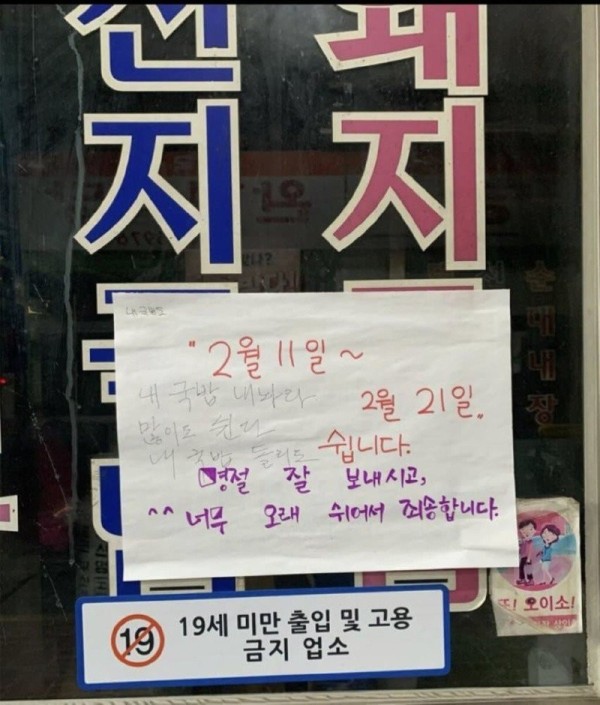 선 돼
지 지
순대내장
"2월 11일 ~
2월 21일"
쉽니다.
내 국밥 내놔라
많이도 쉰다
내 국밥 돌리도
명절 잘 보내시고,
^^ 너무 오래 쉬어서 죄송합니다.
또! 오이소!
19 19세 미만 출입 및 고용
금지 업소